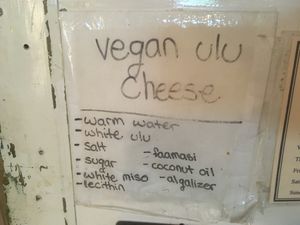 vegan ulu
Cheese
- warm water
- white ulu
- salt - faamasi
- sugar - coconut oil
- white miso - algalizer
- lecithin